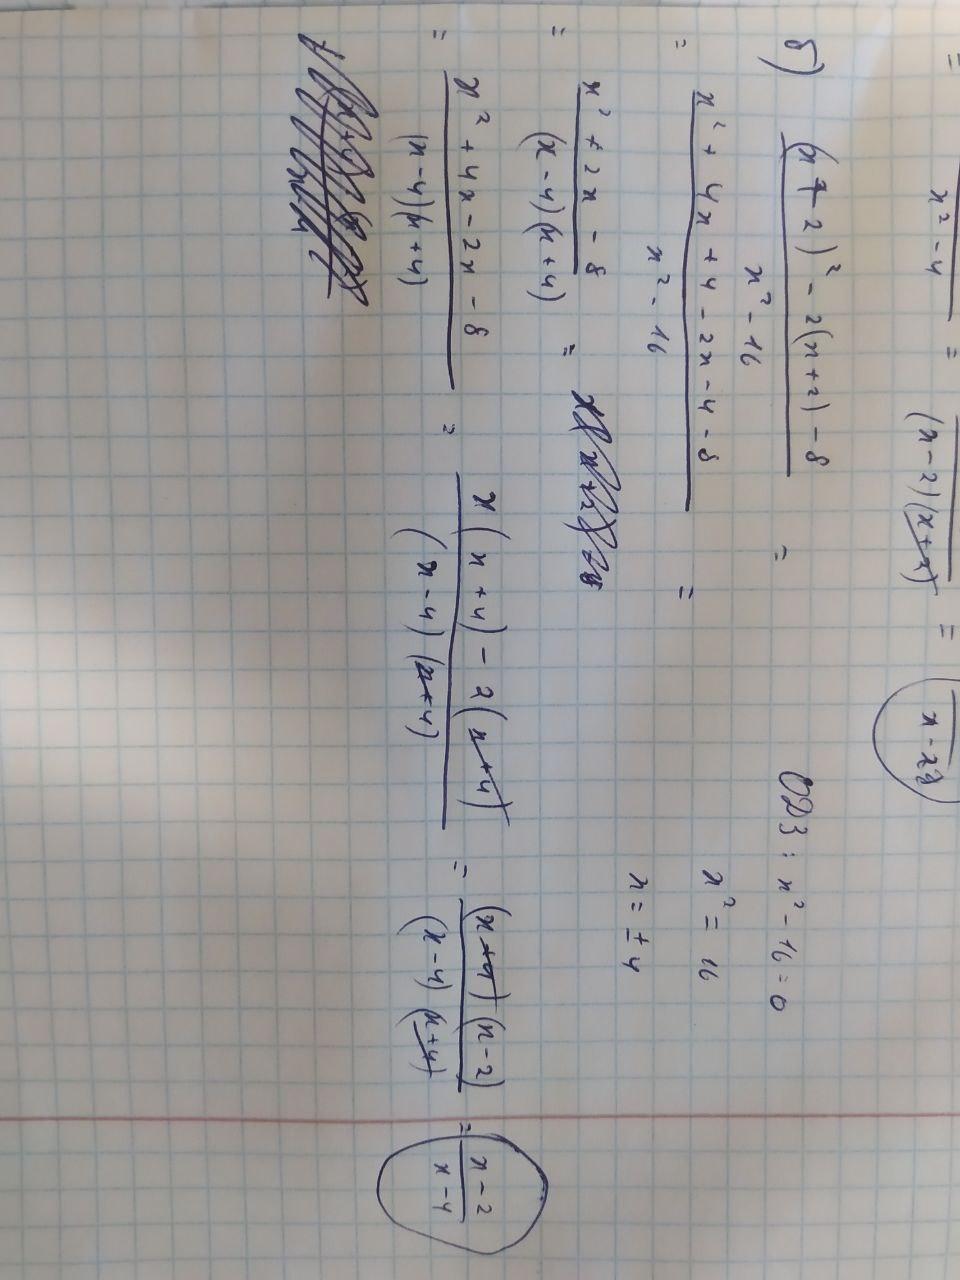 = x² - 4 = (x - 2)(x + 2) = x - 2
б) (x + 2)² - 2(x + 2) - 8 / x² - 16 =
ОДЗ: x² - 16 = 0
x² = 16
x = ± 4
= x² + 4x + 4 - 2x - 4 - 8 / x² - 16 =
= x² + 2x - 8 / (x - 4)(x + 4) =
= x² + 4x - 2x - 8 / (x - 4)(x + 4) = x(x + 4) - 2(x + 4) / (x - 4)(x + 4) = (x + 4)(x - 2) / (x - 4)(x + 4) = x - 2 / x - 4